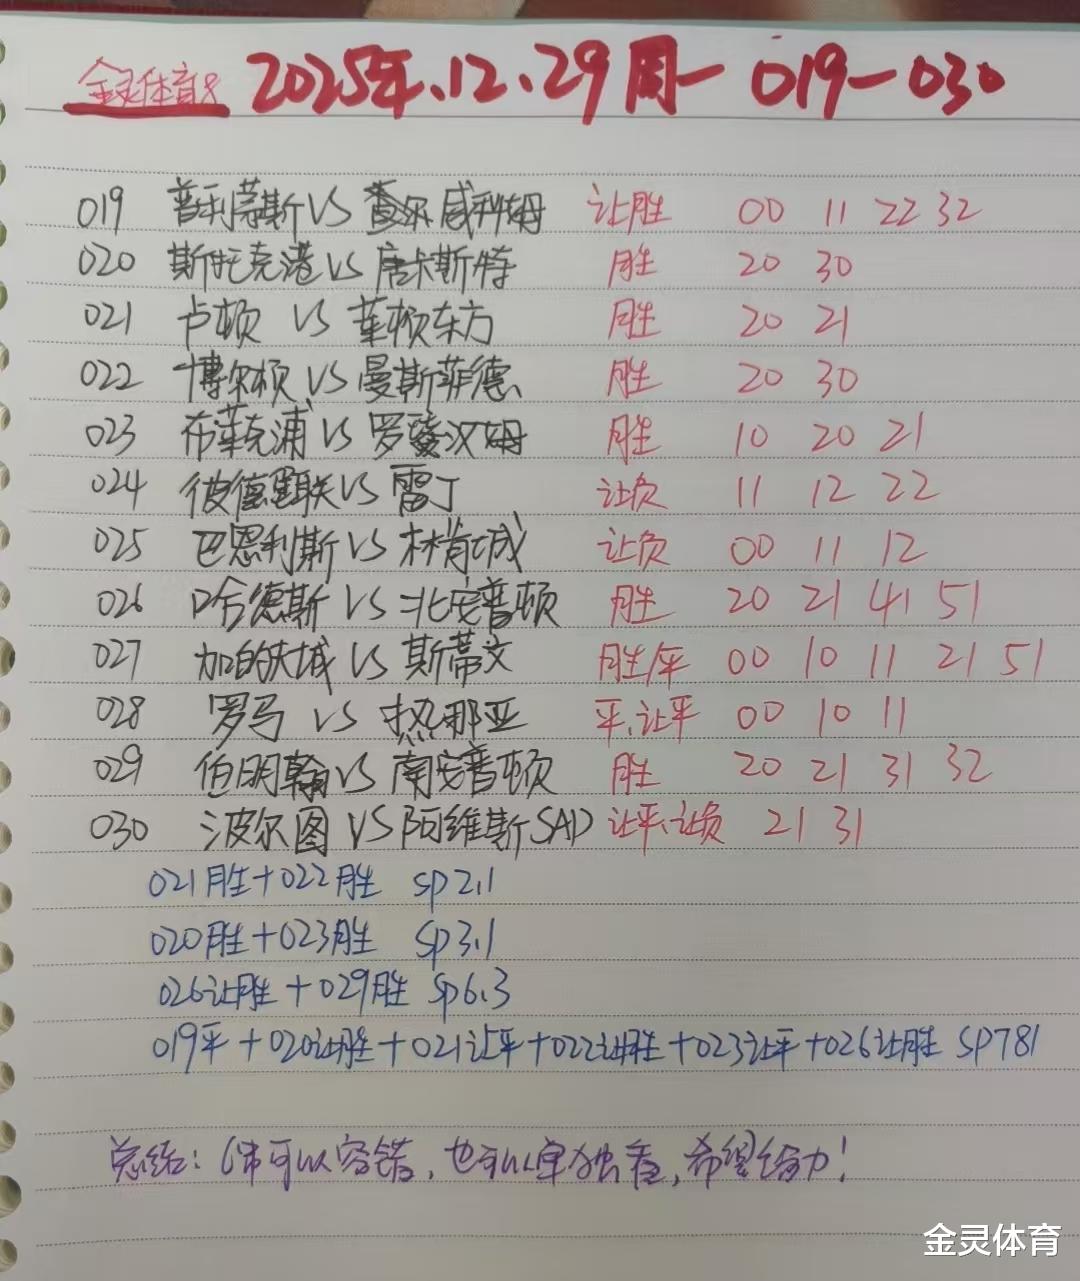 金灵体育 2025年.12.29周一 019-030
019 普利茅斯VS查尔威科姆 让胜 00 11 22 32
020 斯托克港VS唐卡斯特 胜 20 30
021 卢顿 VS 莱顿东方 胜 20 21
022 博尔顿VS曼斯菲德 胜 20 30
023 布莱克浦VS罗瑟汉姆 胜 10 20 21
024 彼德联VS雷丁 让负 11 12 22
025 巴恩利斯VS林肯城 让负 00 11 12
026 哈德斯VS北安普顿 胜 20 21 41 51
027 加的夫城VS斯蒂文 胜/平 00 10 11 21 51
028 罗马 VS 热那亚 平、让平 00 10 11
029 伯明翰VS南安普顿 胜 20 21 31 32
030 波尔图VS阿维斯SAD 让平、让负 21 31
021胜+022胜 SP2.1
020胜+023胜 SP3.1
026让胜+029胜 SP6.3
019平+020让胜+021让平+022让胜+023让平+026让胜 SP781
总结：6串可以容错，也可以单独看，希望给力！
金灵体育